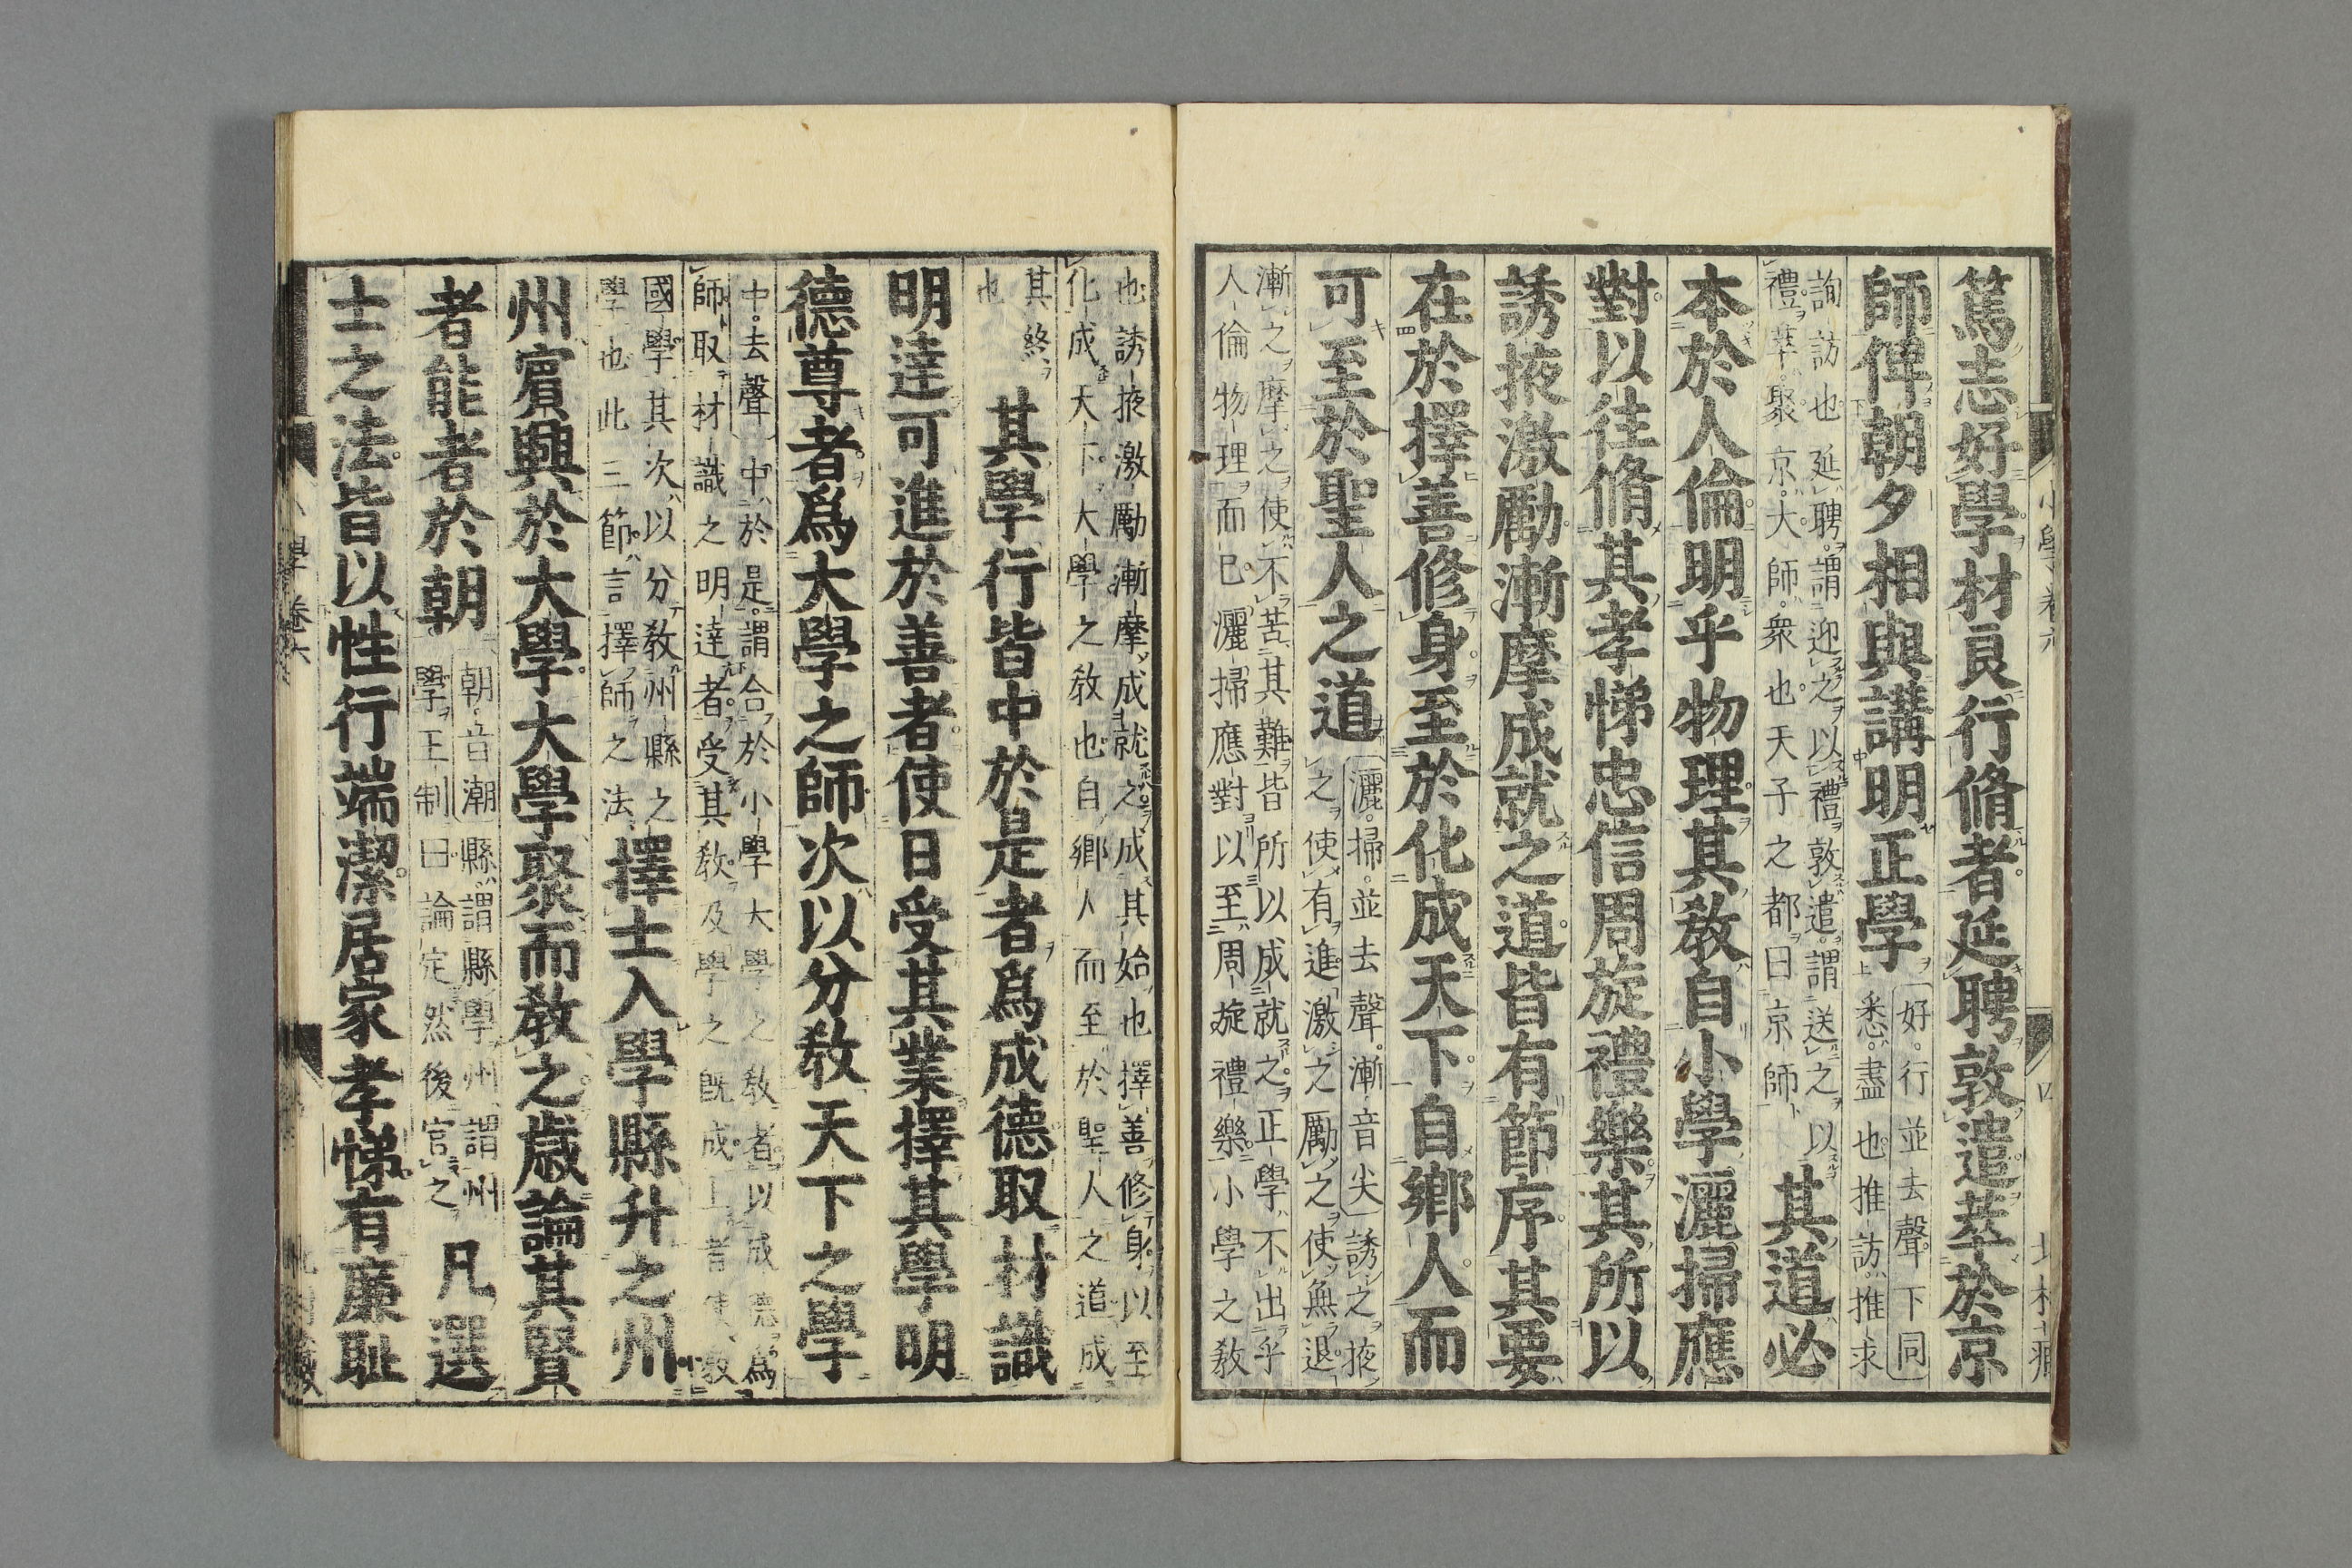 篤志好學材良行脩者延聘敦遣萃於京
師俾朝夕相與講明正學
好行並去聲下同
悉盡也推訪推求
詢訪也延聘謂迎之以禮敦遣謂送之以
禮萃聚京大師衆也天子之都曰京師
其道必
本於人倫明乎物理其敎自小學灑掃應
對以往脩其孝悌忠信周旋禮樂其所以
誘掖激勵漸摩成就之道皆有節序其要
在於擇善修身至於化成天下自鄉人而
可至於聖人之道
灑掃並去聲漸音尖誘之掖
之使有進激之勵之使無退
漸之摩之使不苦其難皆所以成就之正學不出乎
人倫物理而已灑掃應對以至周旋禮樂小學之敎
也誘掖激勵漸摩成就之成其始也擇善修身以至
化成天下大學之敎也自鄉人而至於聖人之道成
其終
也
其學行皆中於是者爲成德取材識
明達可進於善者使日受其業擇其學明
德尊者爲大學之師次以分敎天下之學
中去聲中於是謂合於小學大學之敎者以成德爲
師取材識之明達者受其敎及學之旣成上者使敎
國學其次以分敎州縣之
學也此三節言擇師之法
擇士入學縣升之州
州賓興於大學大學聚而敎之歲論其賢
者能者於朝
朝音潮縣謂縣學州謂州
學王制曰論定然後官之
凡選
士之法皆以性行端潔居家孝悌有廉耻